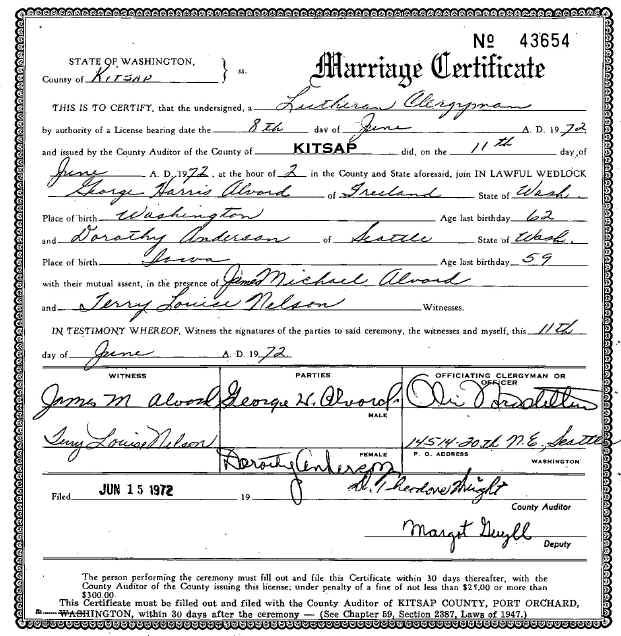 No 43654
STATE OF WASHINGTON,
County of Kitsap } ss.
Marriage Certificate
THIS IS TO CERTIFY, that the undersigned, a Lutheran Clergyman
by authority of a License bearing date the 8th day of June A. D. 1972
and issued by the County Auditor of the County of KITSAP did, on the 11th day of
June A. D. 1972, at the hour of 2 in the County and State aforesaid, join IN LAWFUL WEDLOCK
George Harris Alvord of Freeland State of Wash.
Place of birth Washington Age last birthday 62
and Dorothy Anderson of Seattle State of Wash.
Place of birth Iowa Age last birthday 59
with their mutual assent, in the presence of James Michael Alvord
and Terry Louise Nelson Witnesses.
IN TESTIMONY WHEREOF, Witness the signatures of the parties to said ceremony, the witnesses and myself, this 11th
day of June A. D. 1972.
WITNESS PARTIES OFFICIATING CLERGYMAN OR OFFICER
James M Alvord George H. Alvord
MALE
Terry Louise Nelson 14514-30th N.E., Seattle
FEMALE P. O. ADDRESS WASHINGTON
Dorothy Anderson
Filed JUN 15 1972 19 D. Theodore Wright
County Auditor
Margot
Deputy
The person performing the ceremony must fill out and file this Certificate within 30 days thereafter, with the
County Auditor of the County issuing this license; under penalty of a fine of not less than $25.00 or more than
$300.00.
This Certificate must be filled out and filed with the County Auditor of KITSAP COUNTY, PORT ORCHARD,
WASHINGTON, within 30 days after the ceremony — (See Chapter 59, Section 2387, Laws of 1947.)